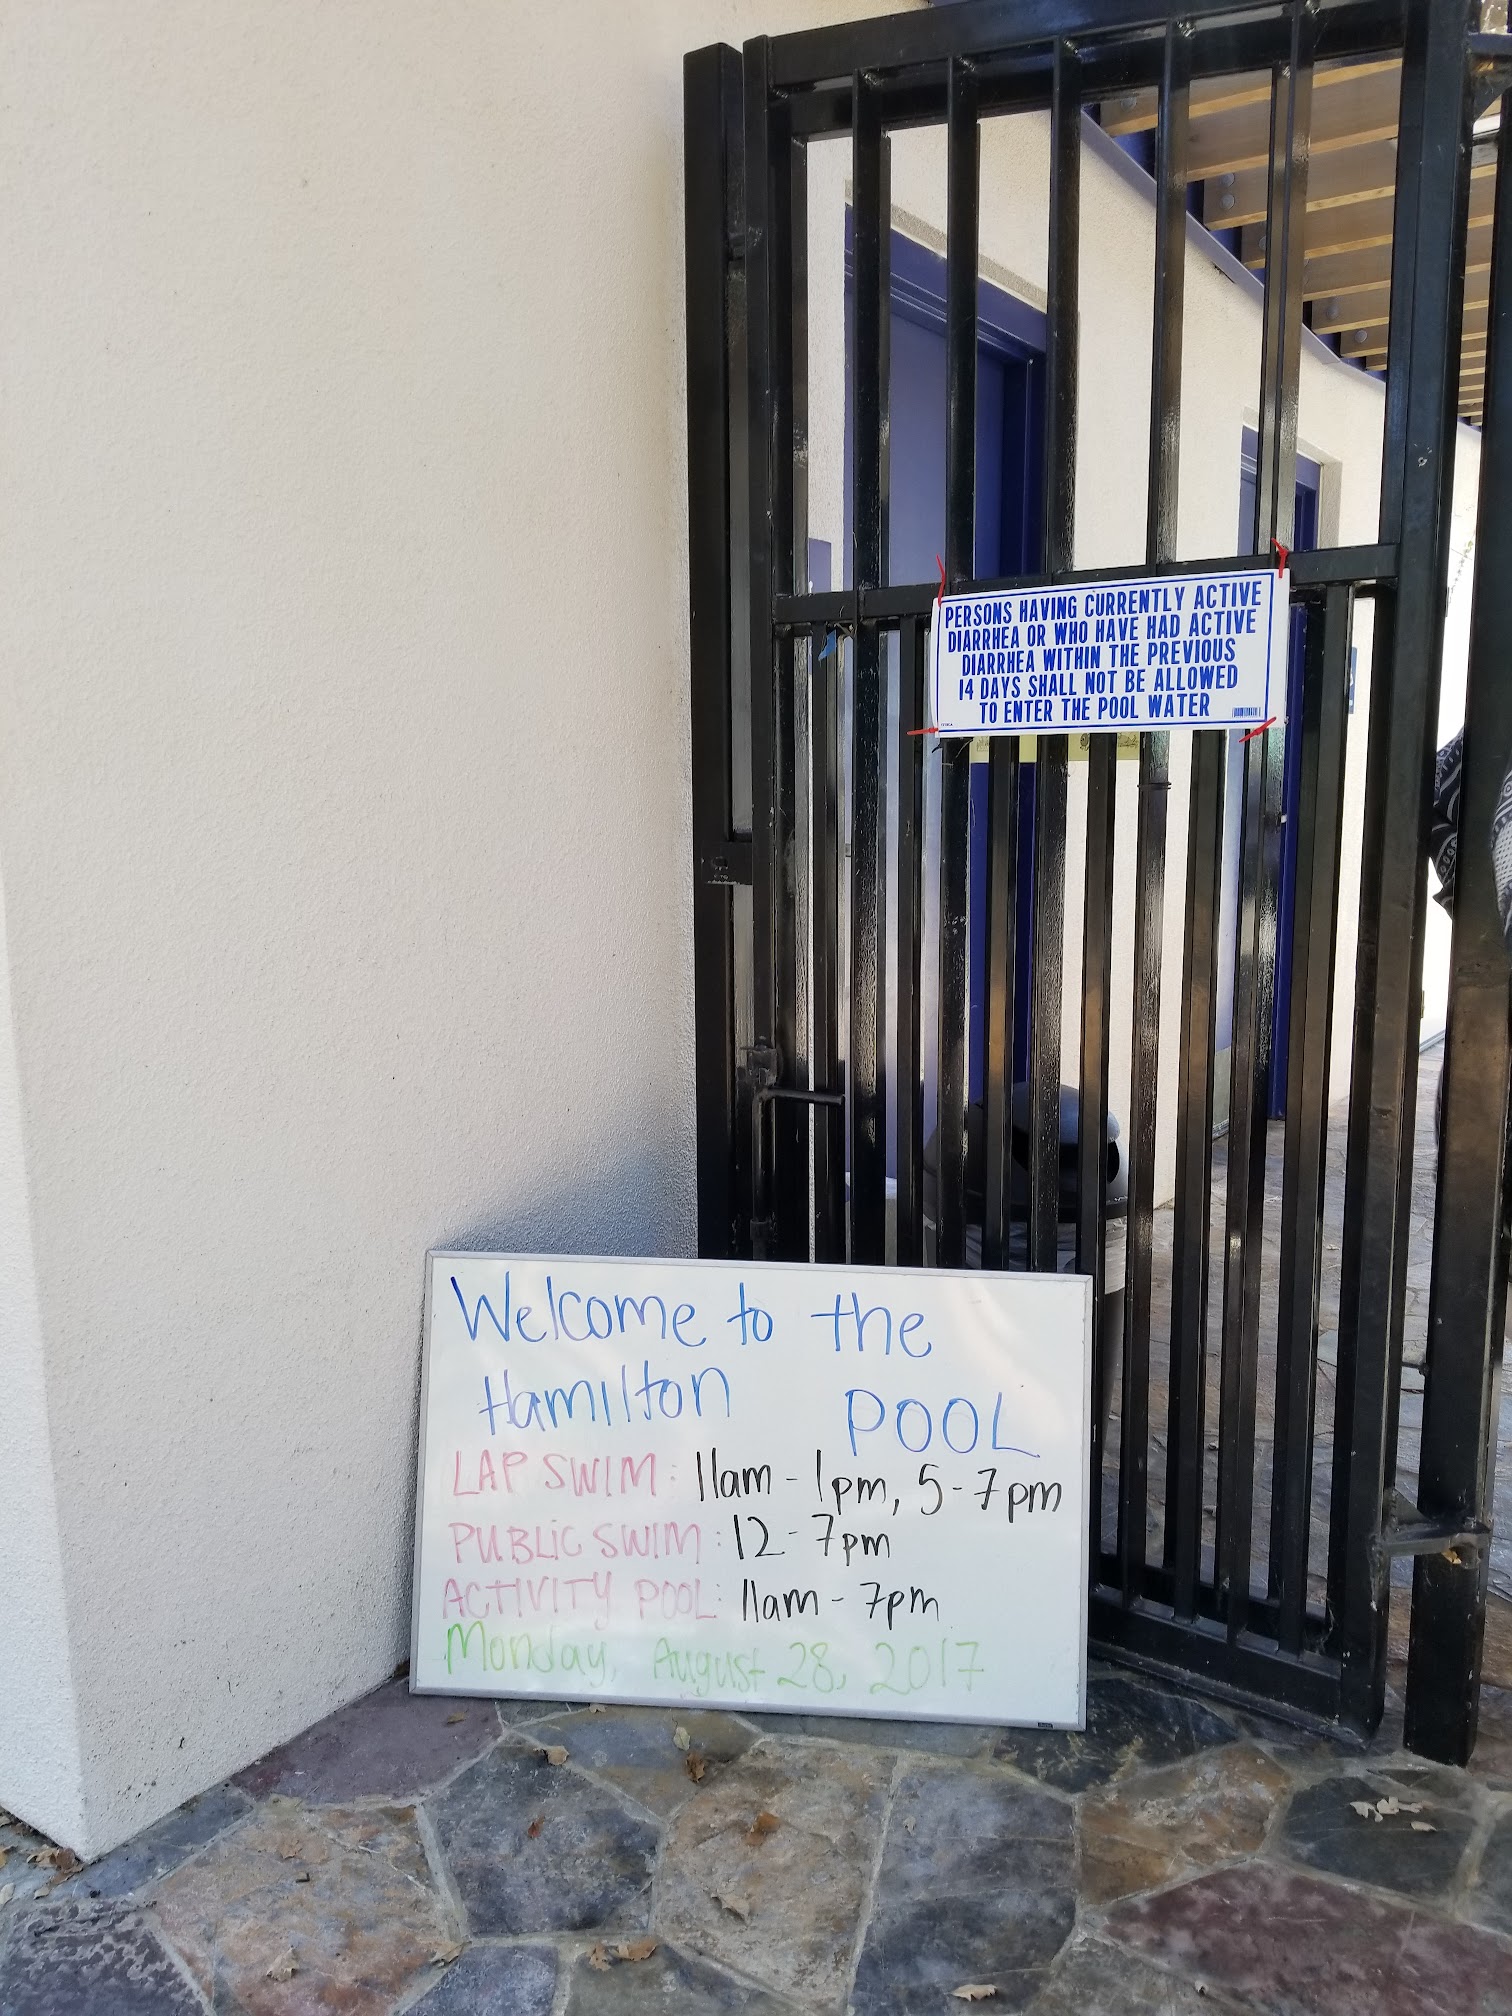 PERSONS HAVING CURRENTLY ACTIVE
DIARRHEA OR WHO HAVE HAD ACTIVE
DIARRHEA WITHIN THE PREVIOUS
14 DAYS SHALL NOT BE ALLOWED
TO ENTER THE POOL WATER
Welcome to the
Hamilton POOL
LAP SWIM: 11am - 1pm, 5-7pm
PUBLIC SWIM: 12-7pm
ACTIVITY POOL: 11am - 7pm
Monday, August 28, 2017